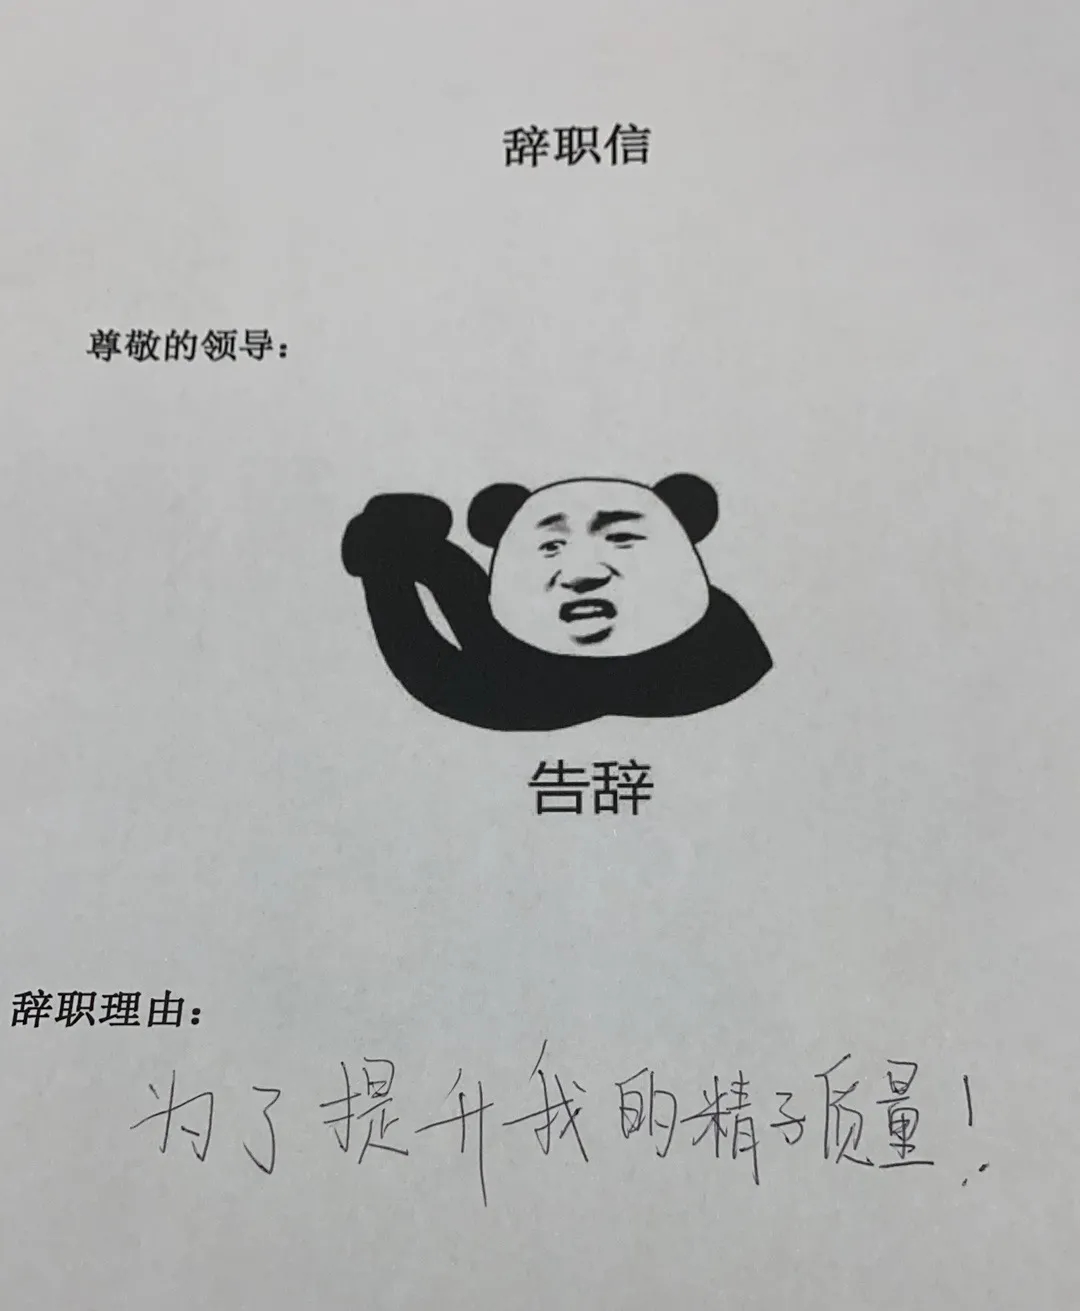 辞职信
尊敬的领导：
告辞
辞职理由：
为了提升我的精子质量！